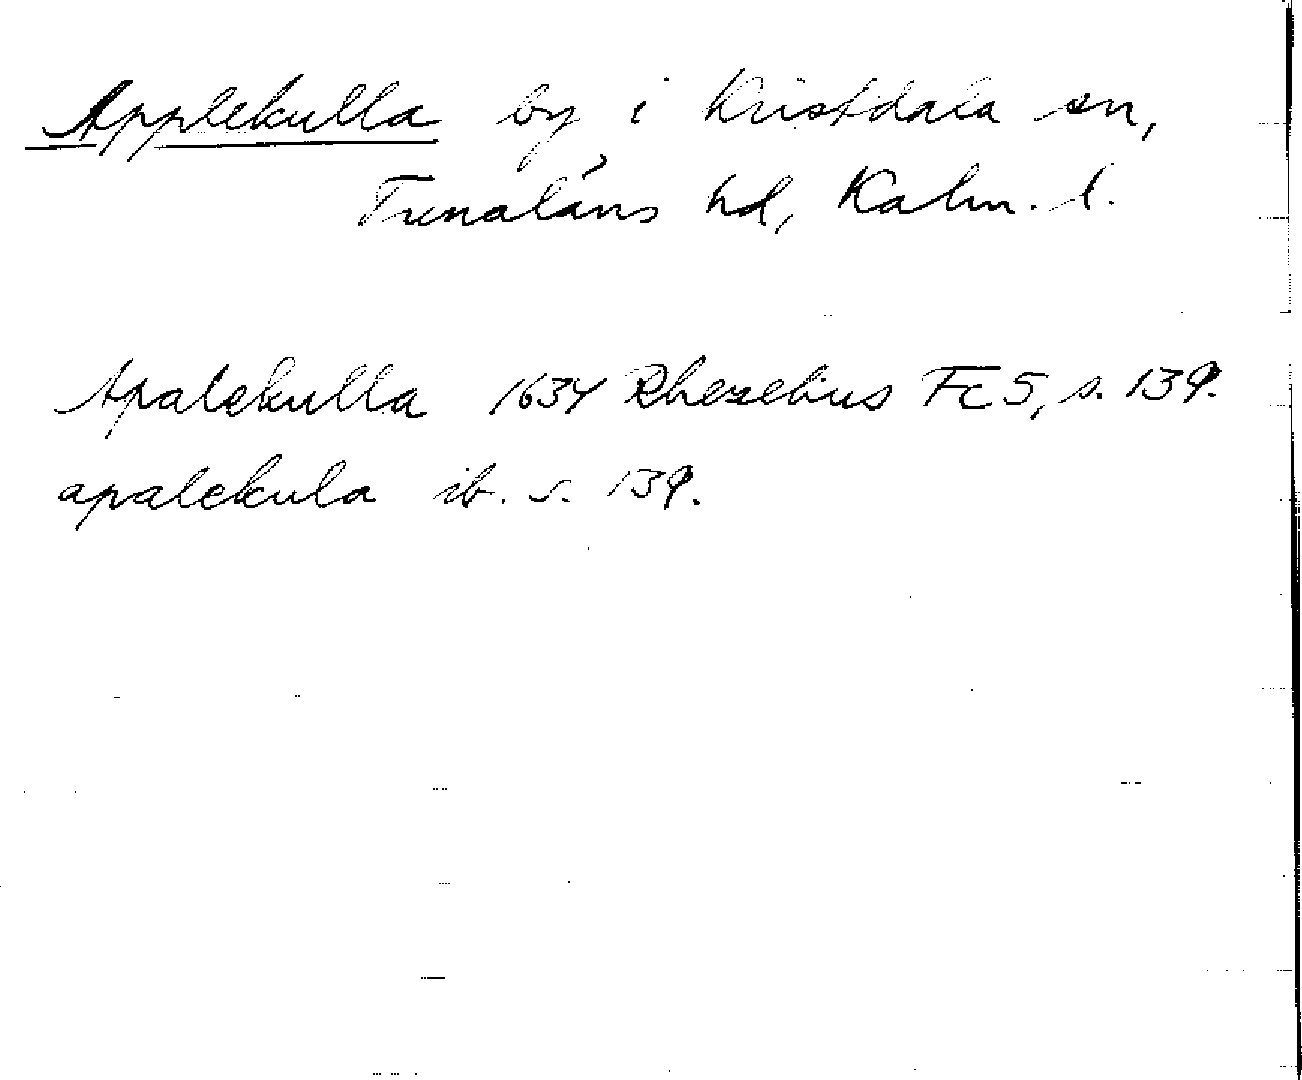 Applekulla by i Kristdala sn,
Tunaläns hd, Kalm. l.
Apalekulla 1634 Rhezelius Fc5, s. 139.
apalekula ib. s. 139.